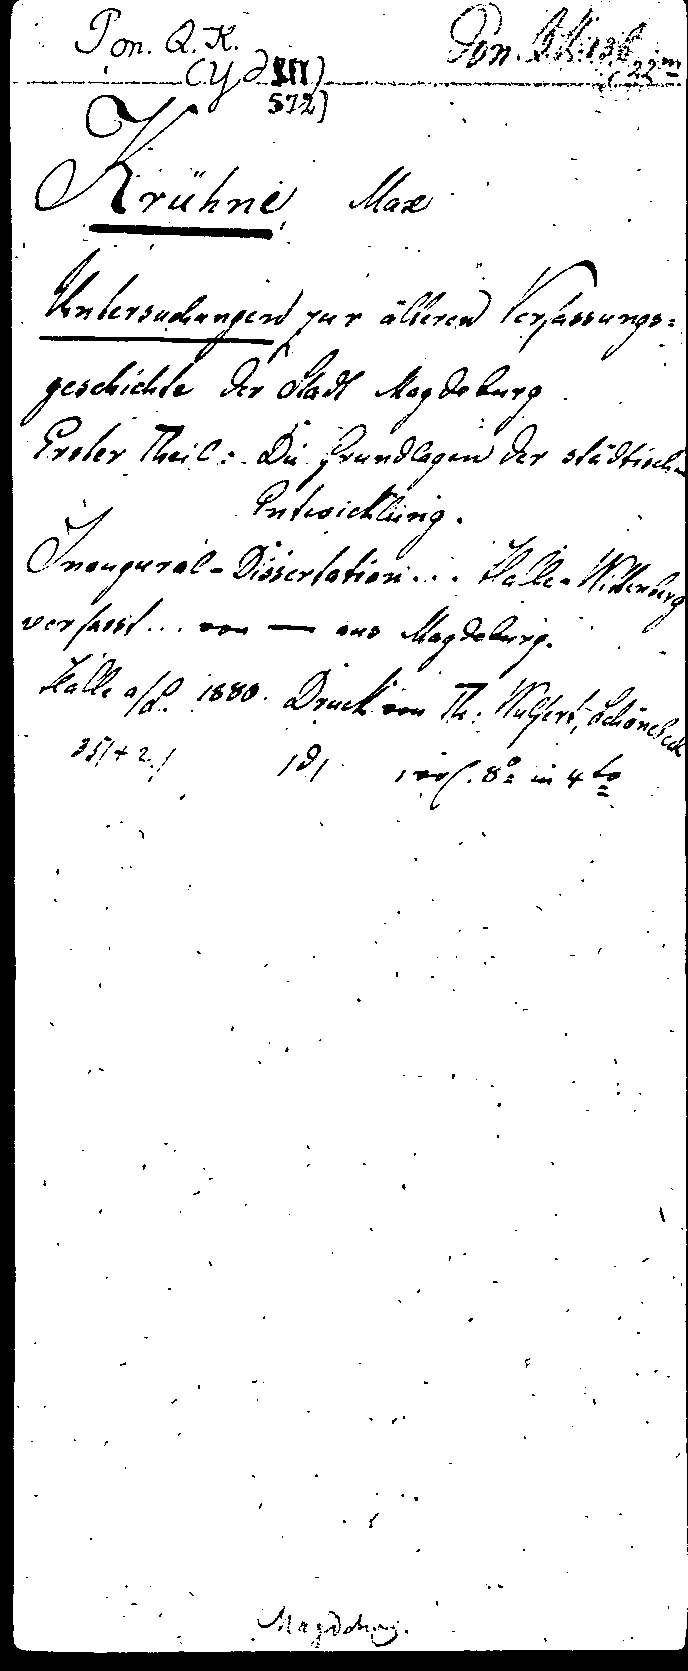 Pon. Q. K.
(Yd III 572)
Pon. 22m
Krühne, Max
Untersuchungen zur älteren Verfassungs=
geschichte der Stadt Magdeburg.
Erster Theil: Die Grundlagen der städtischen
Entwicklung.
Inaugural-Dissertation... Halle-Wittenberg
verfasst... von — aus Magdeburg.
Halle a/S. 1880. Druck von Th. Wulfert, Schönebeck
35/+2/ /D/ 8° in 4to
Magdeburg.